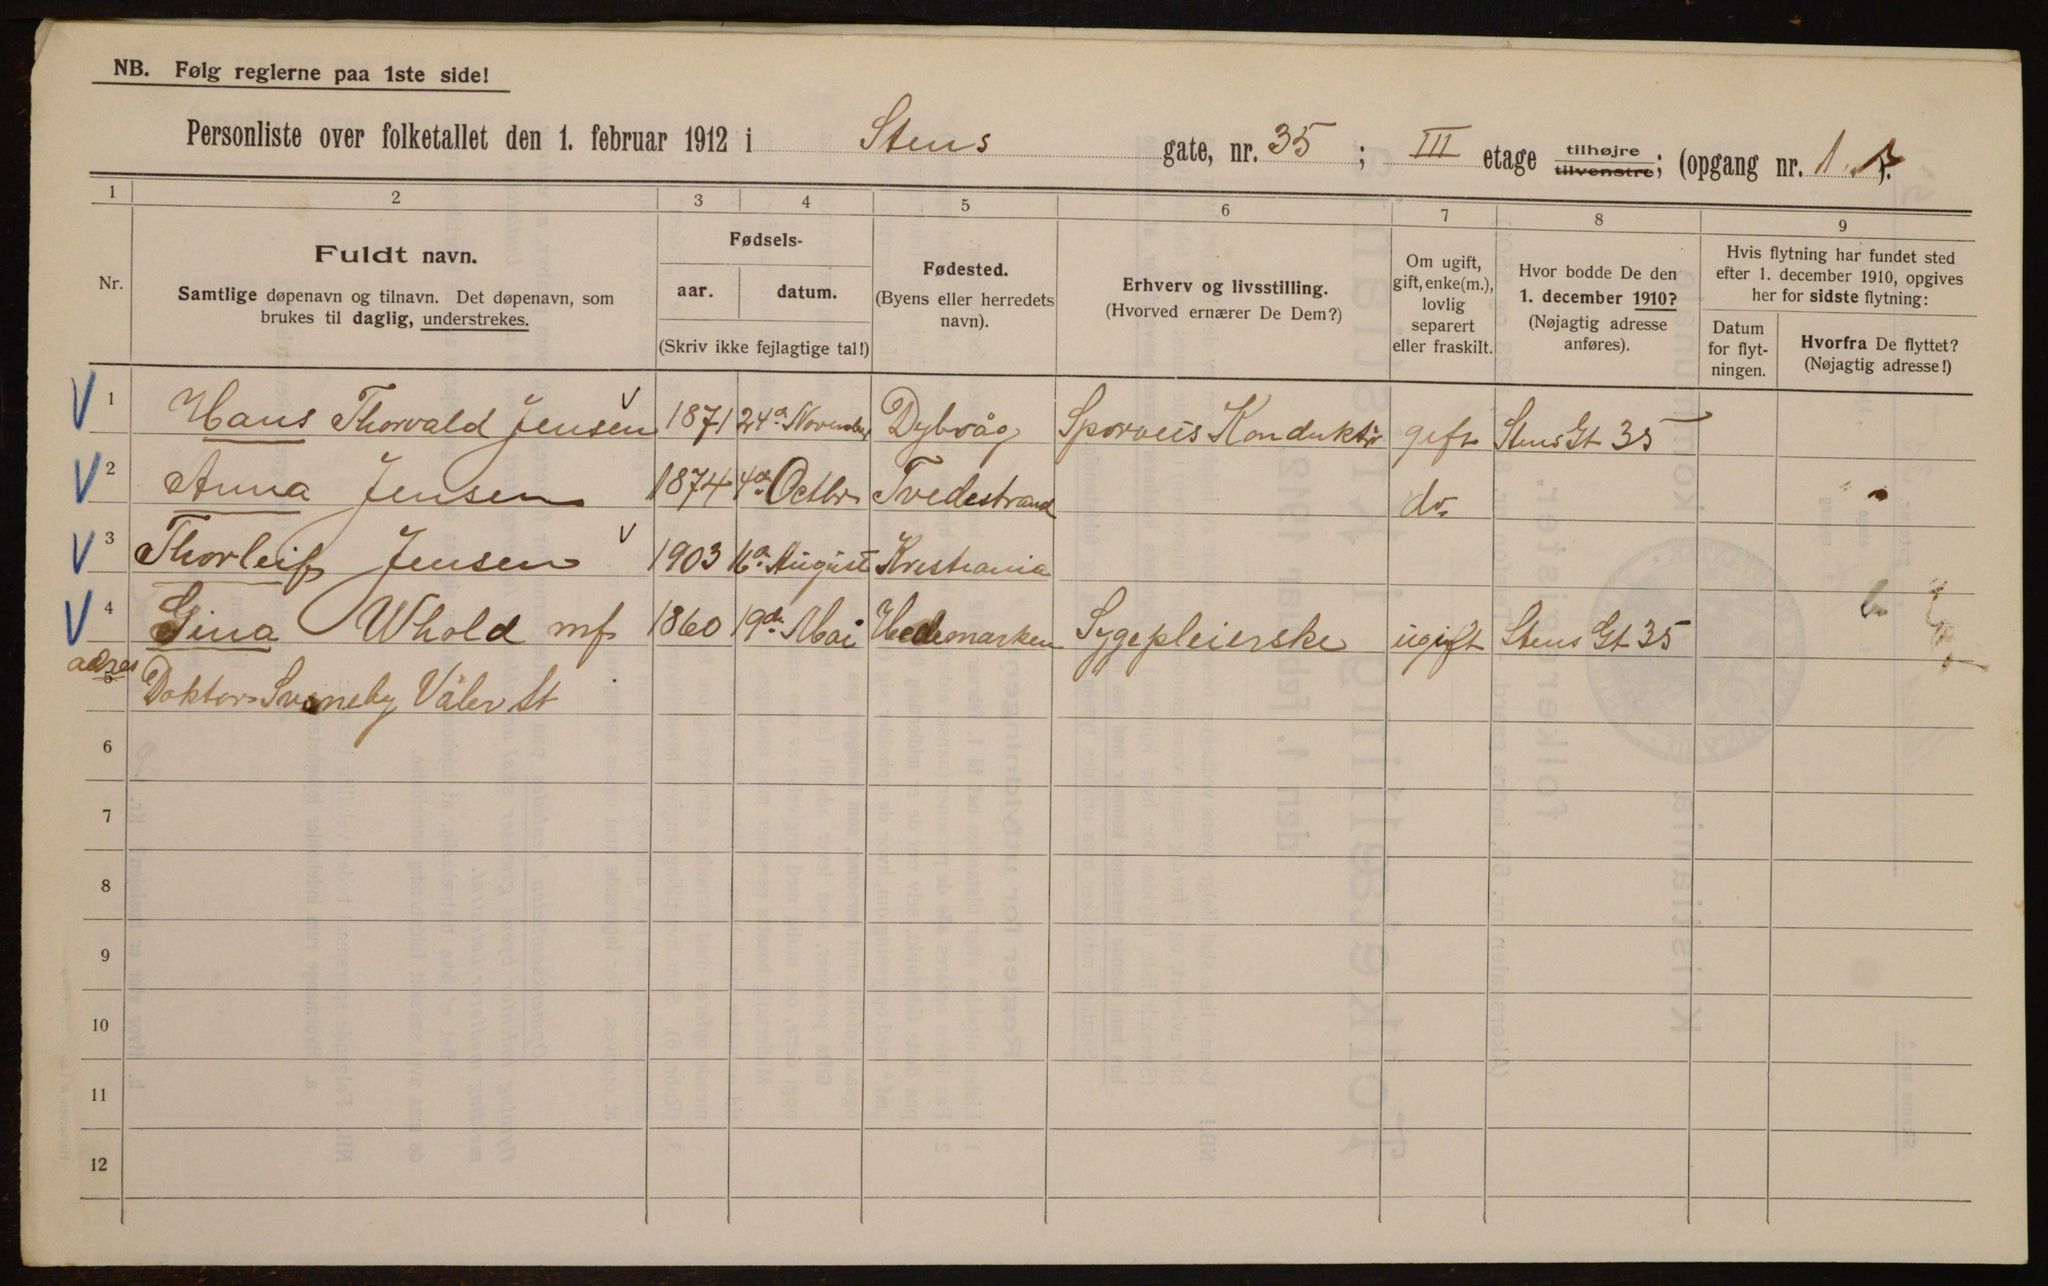 NB. Følg reglerne paa 1ste side!
Personliste over folketallet den 1. februar 1912 i Stens gate, nr. 35 ; III etage tilhøjre tilvenstre; (opgang nr. 1 ).
1 2 3 4 5 6 7 8 9
Nr.
Fuldt navn.
Samtlige døpenavn og tilnavn. Det døpenavn, som
brukes til daglig, understrekes.
Fødsels-
aar. datum.
(Skriv ikke fejlagtige tal!)
Fødested.
(Byens eller herredets
navn).
Erhverv og livsstilling.
(Hvorved ernærer De Dem?)
Om ugift,
gift, enke(m.),
lovlig
separert
eller fraskilt.
Hvor bodde De den
1. december 1910?
(Nøjagtig adresse
anføres).
Hvis flytning har fundet sted
efter 1. december 1910, opgives
her for sidste flytning:
Datum
for flyt-
ningen.
Hvorfra De flyttet?
(Nøjagtig adresse!)
1 Hans Thorvald Jensen 1871 24de November Dybvåg Sporveis Konduktør gift Stens Gt 35
2 Anna Jensen 1874 4de Octbr Tvedestrand do
3 Thorleif Jensen 1903 16de August Kristiania
4 Gina Whold mf 1860 19de Mai Hedemarken Sygepleierske ugift Stens Gt 35
adres
5 Doktor Svenneby Våler St
6
7
8
9
10
11
12